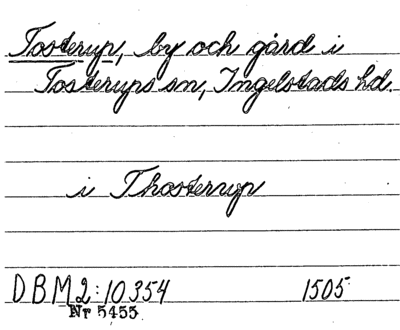 Tosterup, by och gård i
Tosterups sn, Ingelstads hd.
i Thosterup
DBM2:10354 1505
Nr 5455